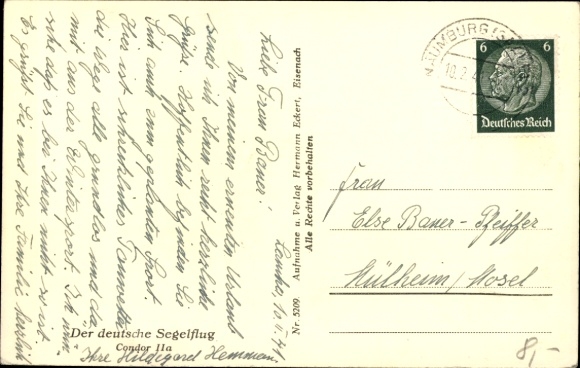 Liebe Frau Bauer!
Laucha, 10.11.41
Von meinem erneuten Urlaub
sende ich Ihnen recht herzliche
Grüße. Hoffentlich befinden Sie
Sich auch gesund.
Hier ist schreckliches Tauwetter,
die Wege alle grundlos und da
mit aus der Wintersport. Ich wün
sche daß es bei Ihnen nicht so ist
Es grüßt Sie und Ihre Familie herzlich
Ihre Hildegard Hemmann.
Der deutsche Segelflug
Condor IIa
Nr. 5209. Aufnahme u. Verlag Hermann Eckert, Eisenach
Alle Rechte vorbehalten
NAUMBURG (SAALE)
6 6
Deutsches Reich
Frau
Else Bauer-Pfeiffer
Mülheim/Mosel
8,-